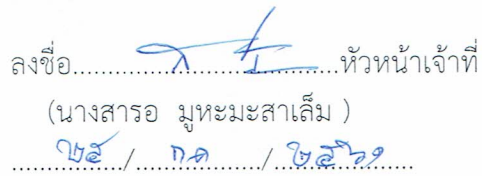 ลงชื่อ..............................หัวหน้าเจ้าที่
(นางสารอ มูหะมะสาเล็ม )
๒๕ / กค / ๒๕๖๑